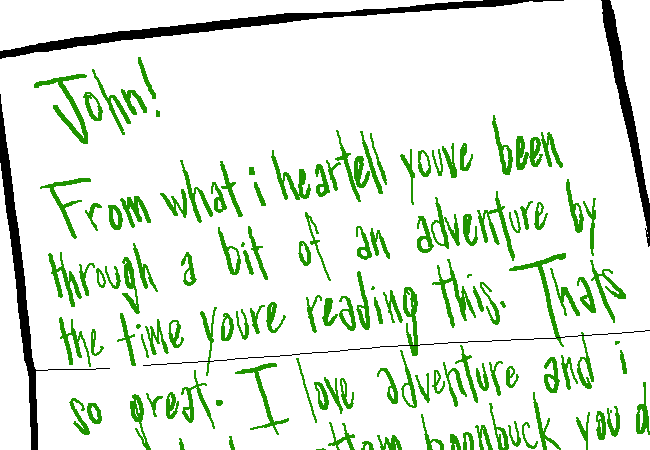 John!
From what i heartell youve been
through a bit of an adventure by
the time youre reading this. Thats
so great. I love adventure and i
boonbuck you